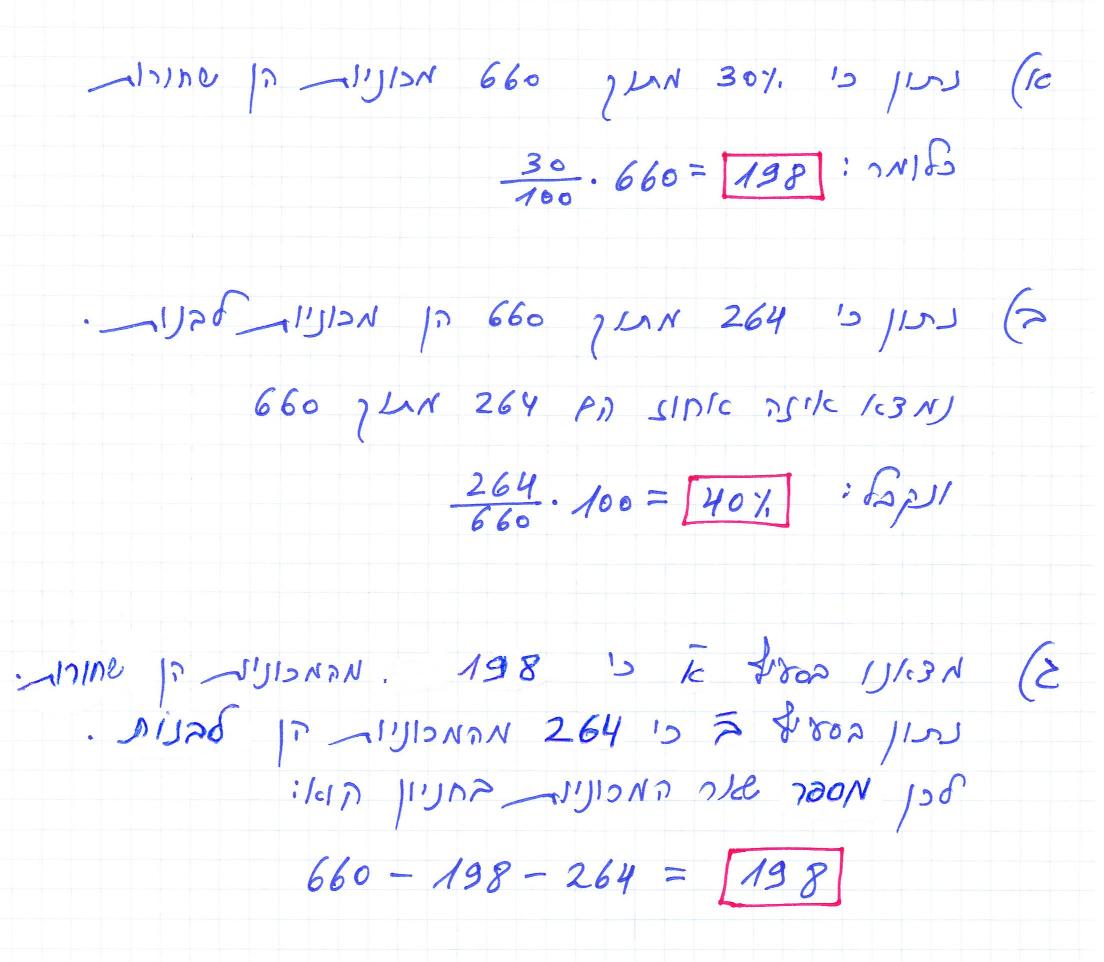 א) נתון כי 30% מתוך 660 מכוניות הן שחורות
כלומר: 30/100 · 660 = 198
ב) נתון כי 264 מתוך 660 הן מכוניות לבנות.
נמצא איזה אחוז הם 264 מתוך 660
ונקבל: 264/660 · 100 = 40%
ג) מצאנו בסעיף א כי 198 . מהמכוניות הן שחורות.
נתון בסעיף ב כי 264 מהמכוניות הן לבנות.
לכן מספר שאר המכוניות בחניון הוא:
660 – 198 – 264 = 198